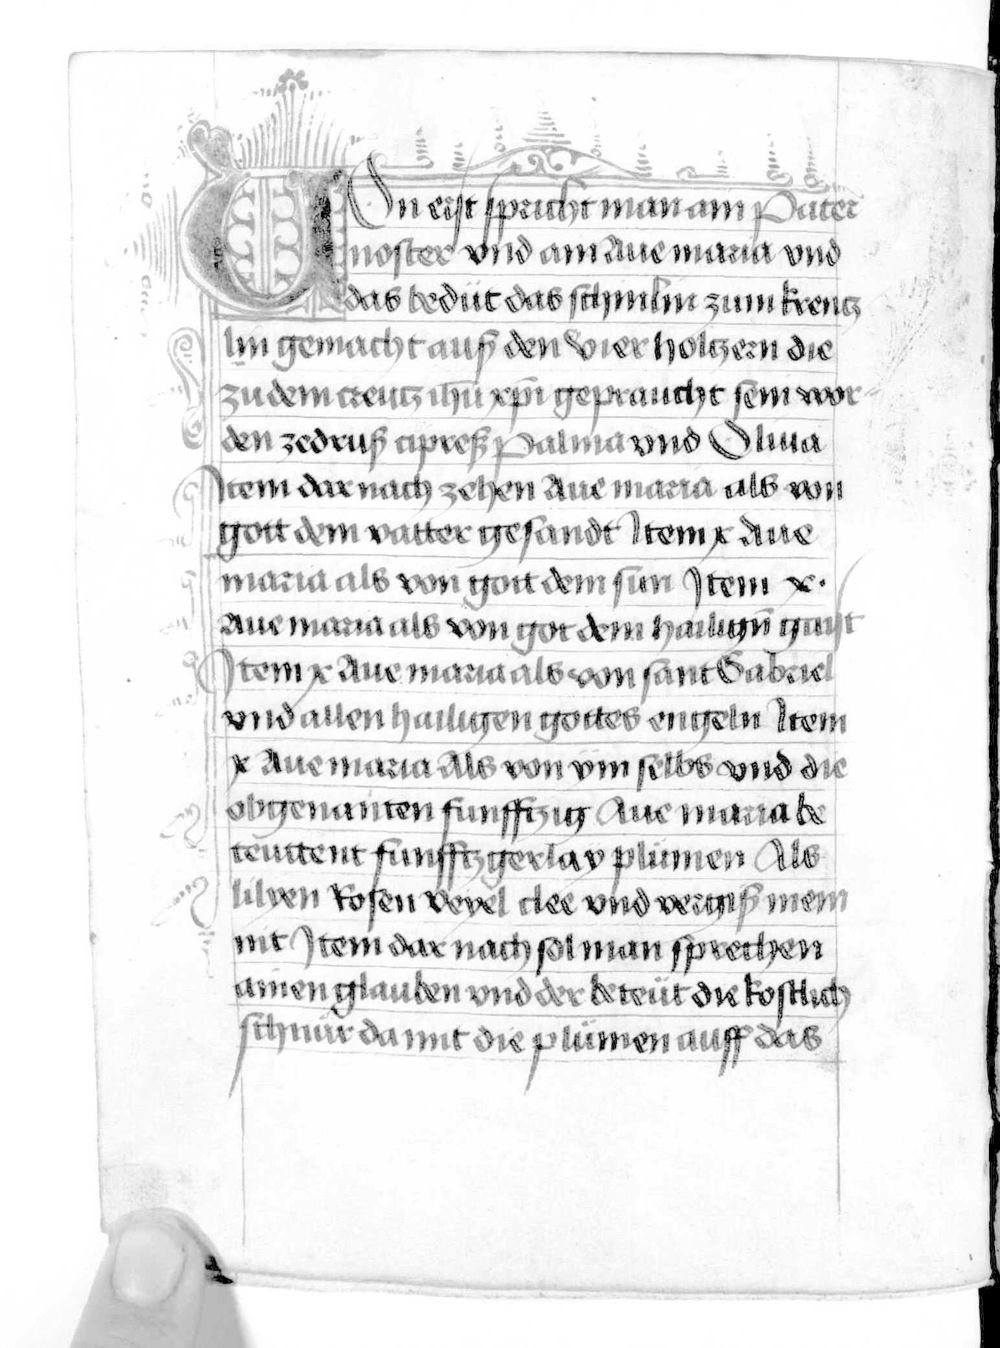 VOn erst spricht man am Pater
noster vnd am Aue maria vnd
das bedüt das schinlin zum krentz
lin gemacht auß den vier holtzern die
zu dem creutz ihū xpi gepraucht sein wor
den zedruß cipreß Palma vnd Oliua
Item dar nach zehen Aue maria als von
gott dem vatter gesandt Item x Aue
maria als von gott dem sun Item x.
Aue maria als von got dem hailigñ gaist
Item x Aue maria als von sant Gabriel
vnd allen hailigen gottes engeln Item
x Aue maria Als von vm selbs vnd die
obgenanten funffzig Aue maria be
teuttent funfftzgerlay plümen Als
lilyen Rosen veyel clee vnd vergiß mein
nit Item dar nach sol man sprechen
ainen glauben vnd der beteüt die kostlich
schnür da mit die plümen auff das